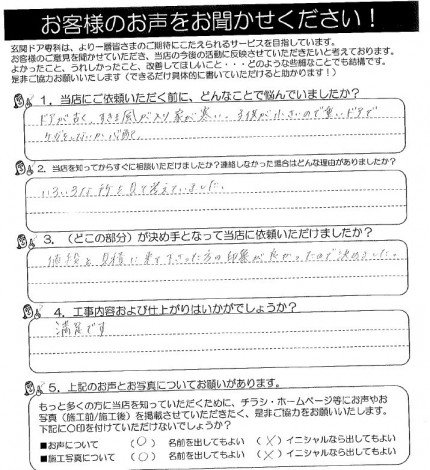 お客様のお声をお聞かせください！
玄関ドア専科は、より一層皆さまのご期待にこたえられるサービスを目指しています。
お客様のご意見を聞かせていただき、当店の今後の活動に反映させていただきたいと考えております。
よかったこと、うれしかったこと、改善してほしいこと・・・どのような些細なことでも結構です。
是非ご協力お願いいたします（できるだけ具体的に書いていただけると助かります！）
1．当店にご依頼いただく前に、どんなことで悩んでいましたか？
ドアが古く、すきま風が入り家が寒い。子供が小さいので重いドアで
ケガをしないか心配
2．当店を知ってからすぐに相談いただけましたか？連絡しなかった場合はどんな理由がありましたか？
いろいろな所を見て考えていました。
3．（どこの部分）が決め手となって当店に依頼いただけましたか？
価格と見積に来て下さった方の印象が良かったので決めました。
4．工事内容および仕上がりはいかがでしょうか？
満足です
5．上記のお声とお写真についてお願いがあります。
もっと多くの方に当店を知っていただくために、チラシ・ホームページ等にお声やお
写真（施工前/施工後）を掲載させていただきたく、是非ご協力をお願いいたします。
下記に〇印を付けていただけないでしょうか？
■お声について （〇） 名前を出してもよい （×）イニシャルなら出してもよい
■施工写真について （〇） 名前を出してもよい （×）イニシャルなら出してもよい